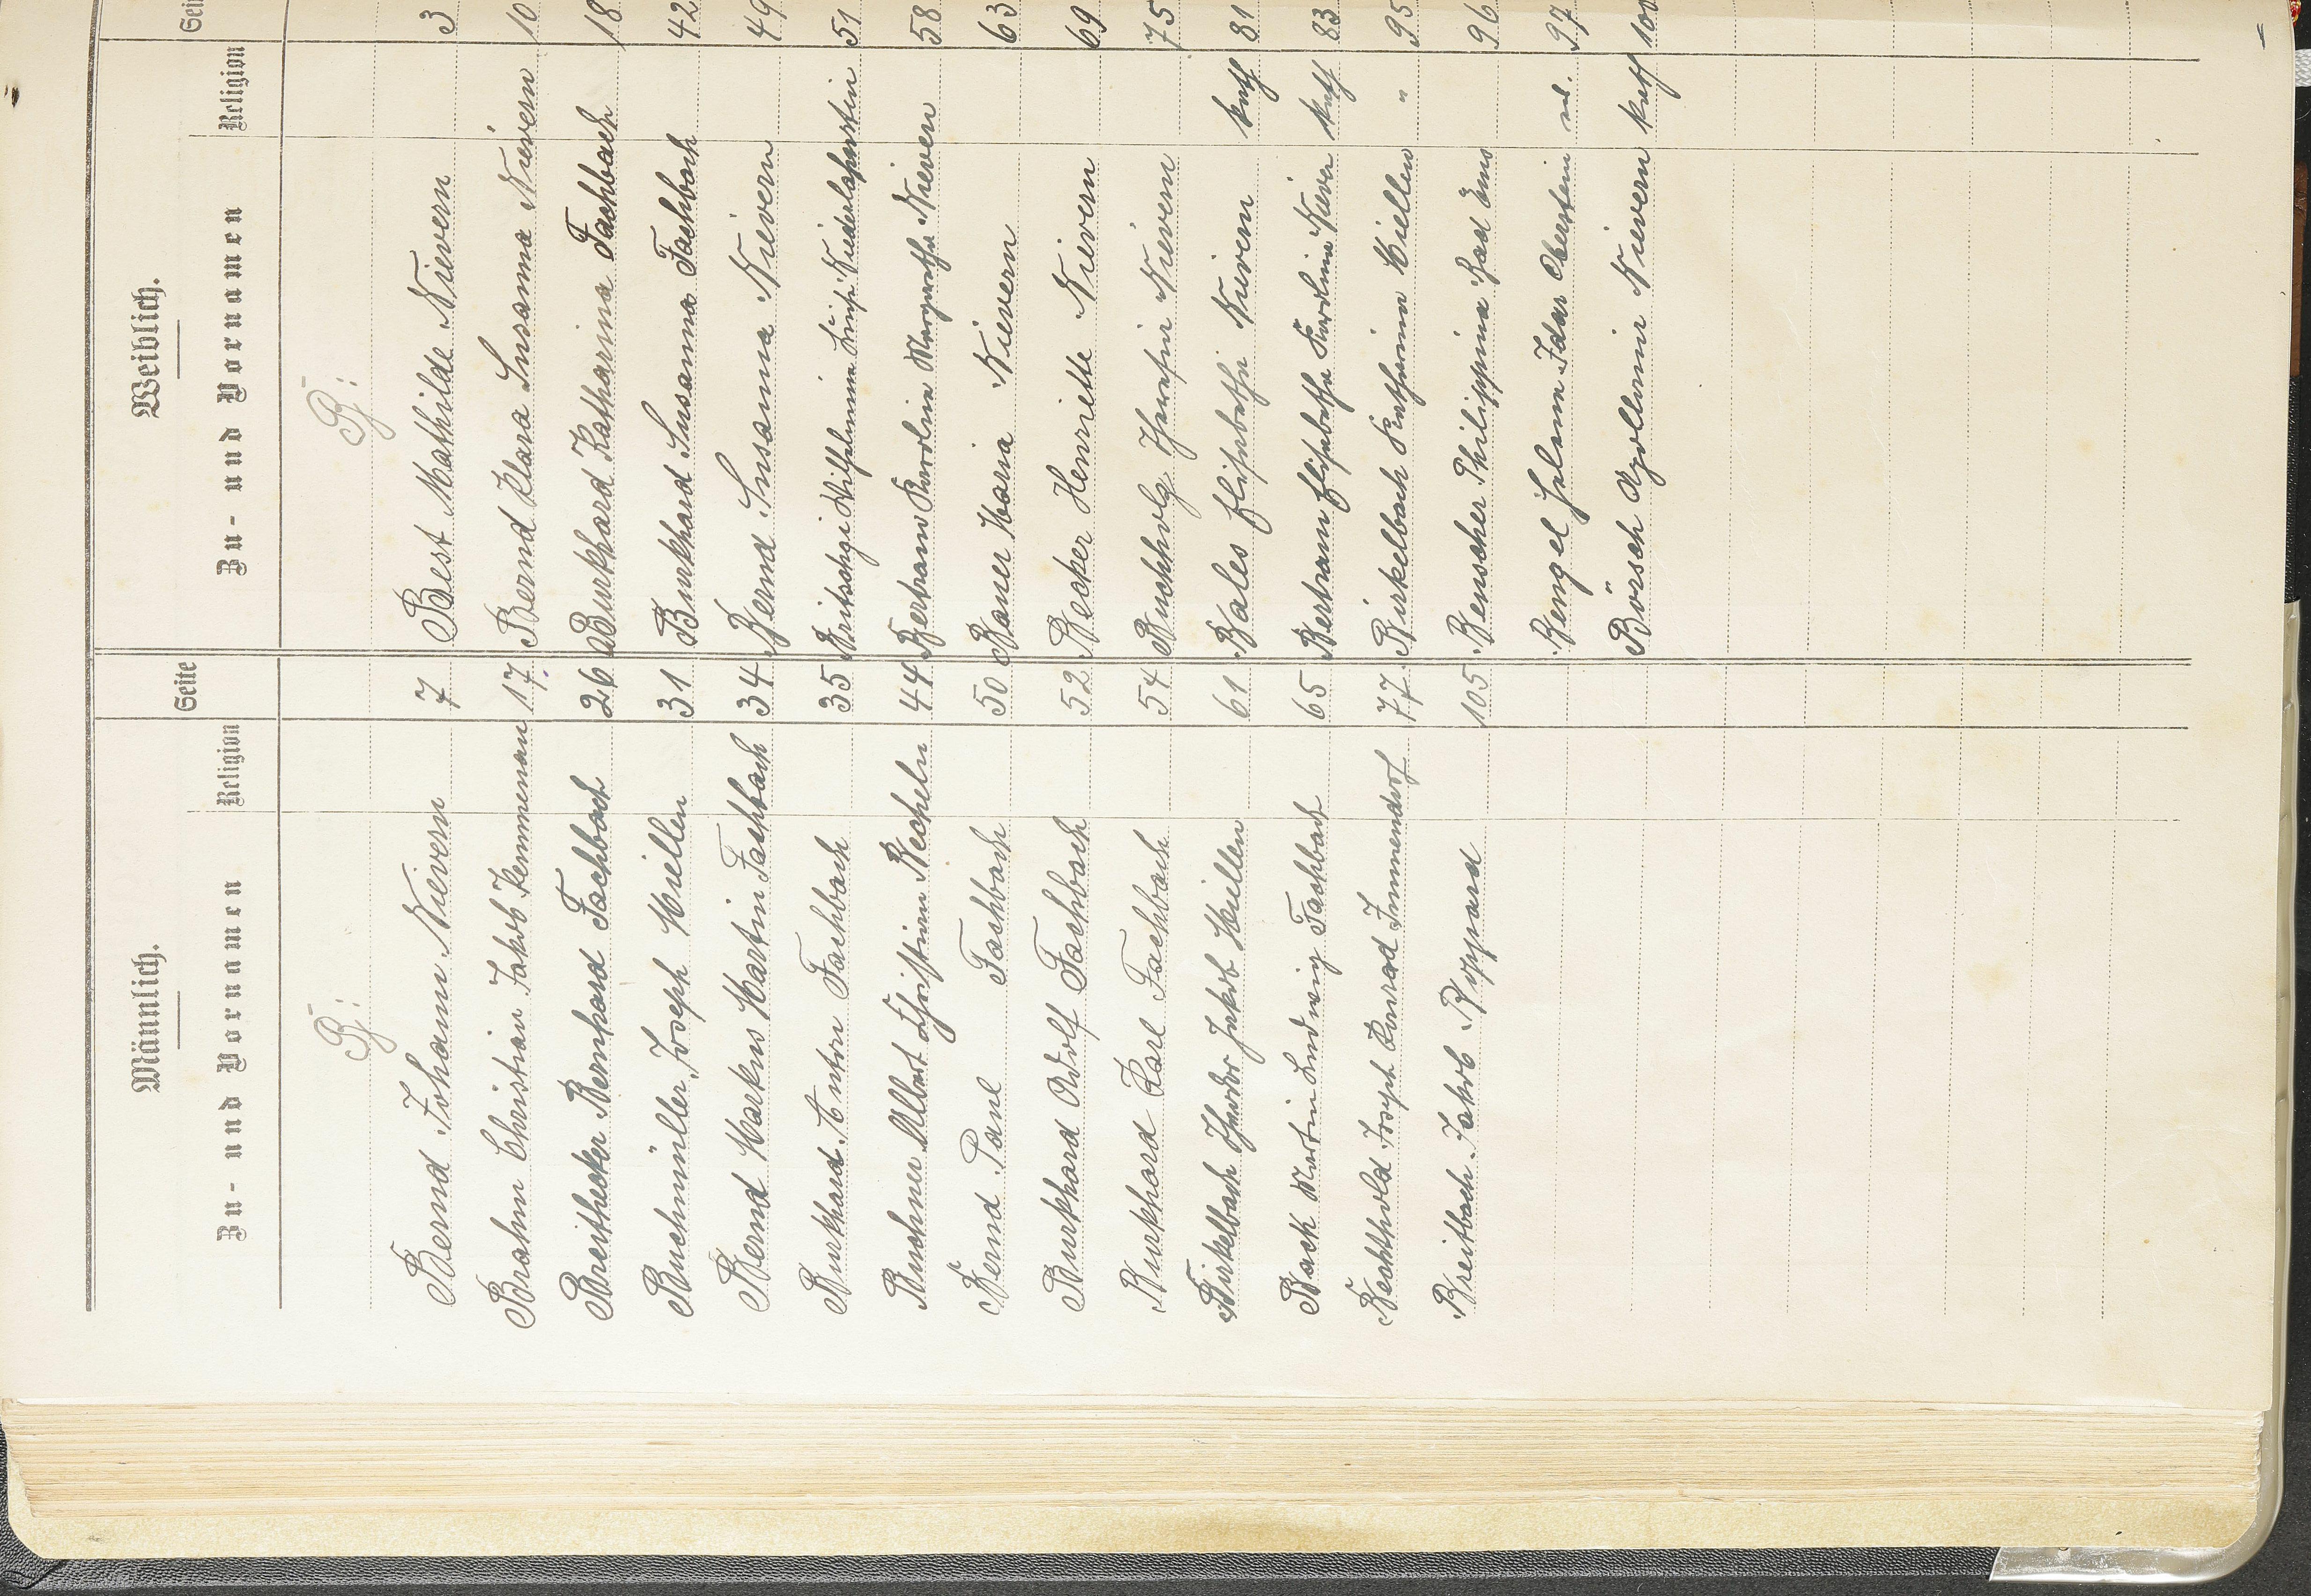 Männlich.
Zu- und Vornamen Religion Seite
B:
Bernd Johann Nievern 7
Brahm Christian Jakob Kemmenau 17.
Breithecker Bernhard Fachbach 26
Buchmüller Joseph Miellen 31
Bernd Markus Martin Fachbach 34
Burkhard Anton Fachbach 35
Buchner Albert Christian Becheln 44
Bernd Paul Fachbach 50
Burkhard Adolf Fachbach 52
Burkhard Karl Fachbach 54
Birkelbach Theodor Jakob Miellen 61
Back Martin Ludwig Fachbach 65
Bechthold Joseph Konrad Immendorf 77
Breitbach Jakob Boppard 105
Weiblich.
Zu- und Vornamen Religion Sei
B:
Best Mathilde Nievern 3
Bernd Klara Susanna Nievern 10
Burkhard Katharina Fachbach 18
Burkhard Susanna Fachbach 42
Bernd Susanna Nievern 49
Wilhelmine Luise Niederlahnstein 51
Bertram Karolina Margaretha Nievern 58
Bauer Maria Nievern 63
Becker Henriette Nievern 69
Buchholz Theresia Nievern 75
Bales Elisabetha Nievern kath 81
Bertram Elisabetha Karolina Nievern kath 83
Birkelbach Katharina Miellen " 95
Benscher Philippina Bad Ems 96
Bengel Helena Idar Oberstein ev. 97
Börsch Apollonia Nievern kath 100